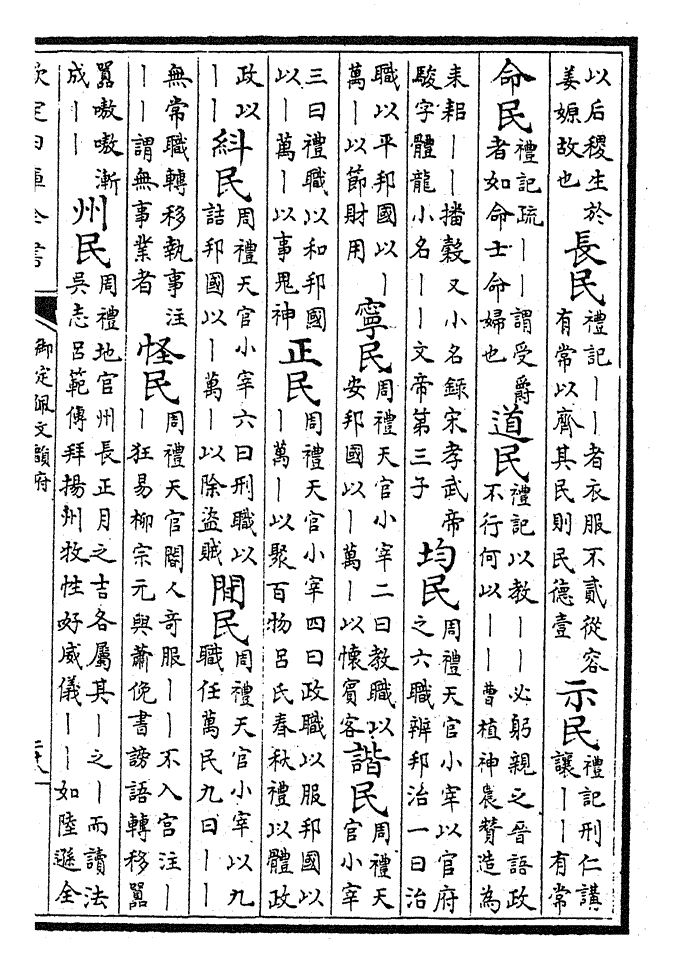 以后稷生於姜嫄故也長民禮記丨丨者衣服不貳從容有常以齊其民則民德壹示民禮記刑仁講讓丨丨有常
命民禮記疏丨丨謂受爵者如命士命婦也道民禮記以教丨丨必躬親之晉語政不行何以丨丨曹植神農贊造為
耒耜丨丨播穀又小名錄宋孝武帝駿字體龍小名丨丨文帝第三子均民周禮天官小宰以官府之六職辨邦治一曰治
職以平邦國以丨萬丨以節財用寧民周禮天官小宰二曰教職以安邦國以丨萬丨以懷賓客諧民周禮天官小宰
三曰禮職以和邦國以丨萬丨以事鬼神正民周禮天官小宰四曰政職以服邦國以丨萬丨以聚百物呂氏春秋禮以體政
政以丨丨糾民周禮天官小宰六曰刑職以詰邦國以丨萬丨以除盜賊閒民周禮天官小宰以九職任萬民九曰丨丨
無常職轉移執事注丨丨謂無事業者怪民周禮天官閽人奇服丨丨不入宮注丨丨狂易柳宗元與蕭俛書謗語轉移囂
囂嗷嗷漸成丨丨州民周禮地官州長正月之吉各屬其丨之丨而讀法吳志呂範傳拜揚州牧性好威儀丨丨如陸遜全
欽定四庫全書
御定佩文韻府